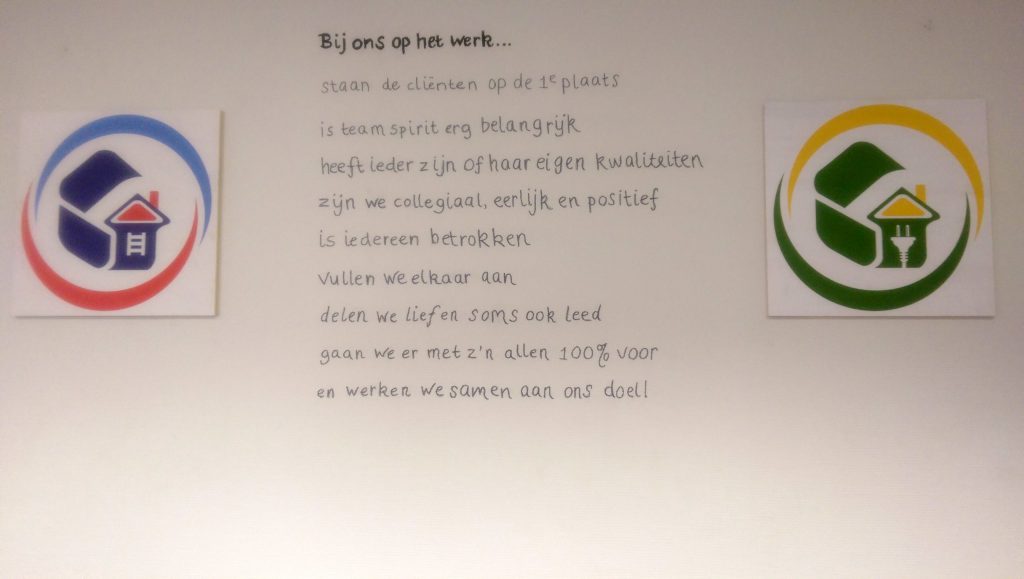 Bij ons op het werk...
staan de cliënten op de 1e plaats
is teamspirit erg belangrijk
heeft ieder zijn of haar eigen kwaliteiten
zijn we collegiaal, eerlijk en positief
is iedereen betrokken
vullen we elkaar aan
delen we lief en soms ook leed
gaan we er met z'n allen 100% voor
en werken we samen aan ons doel!